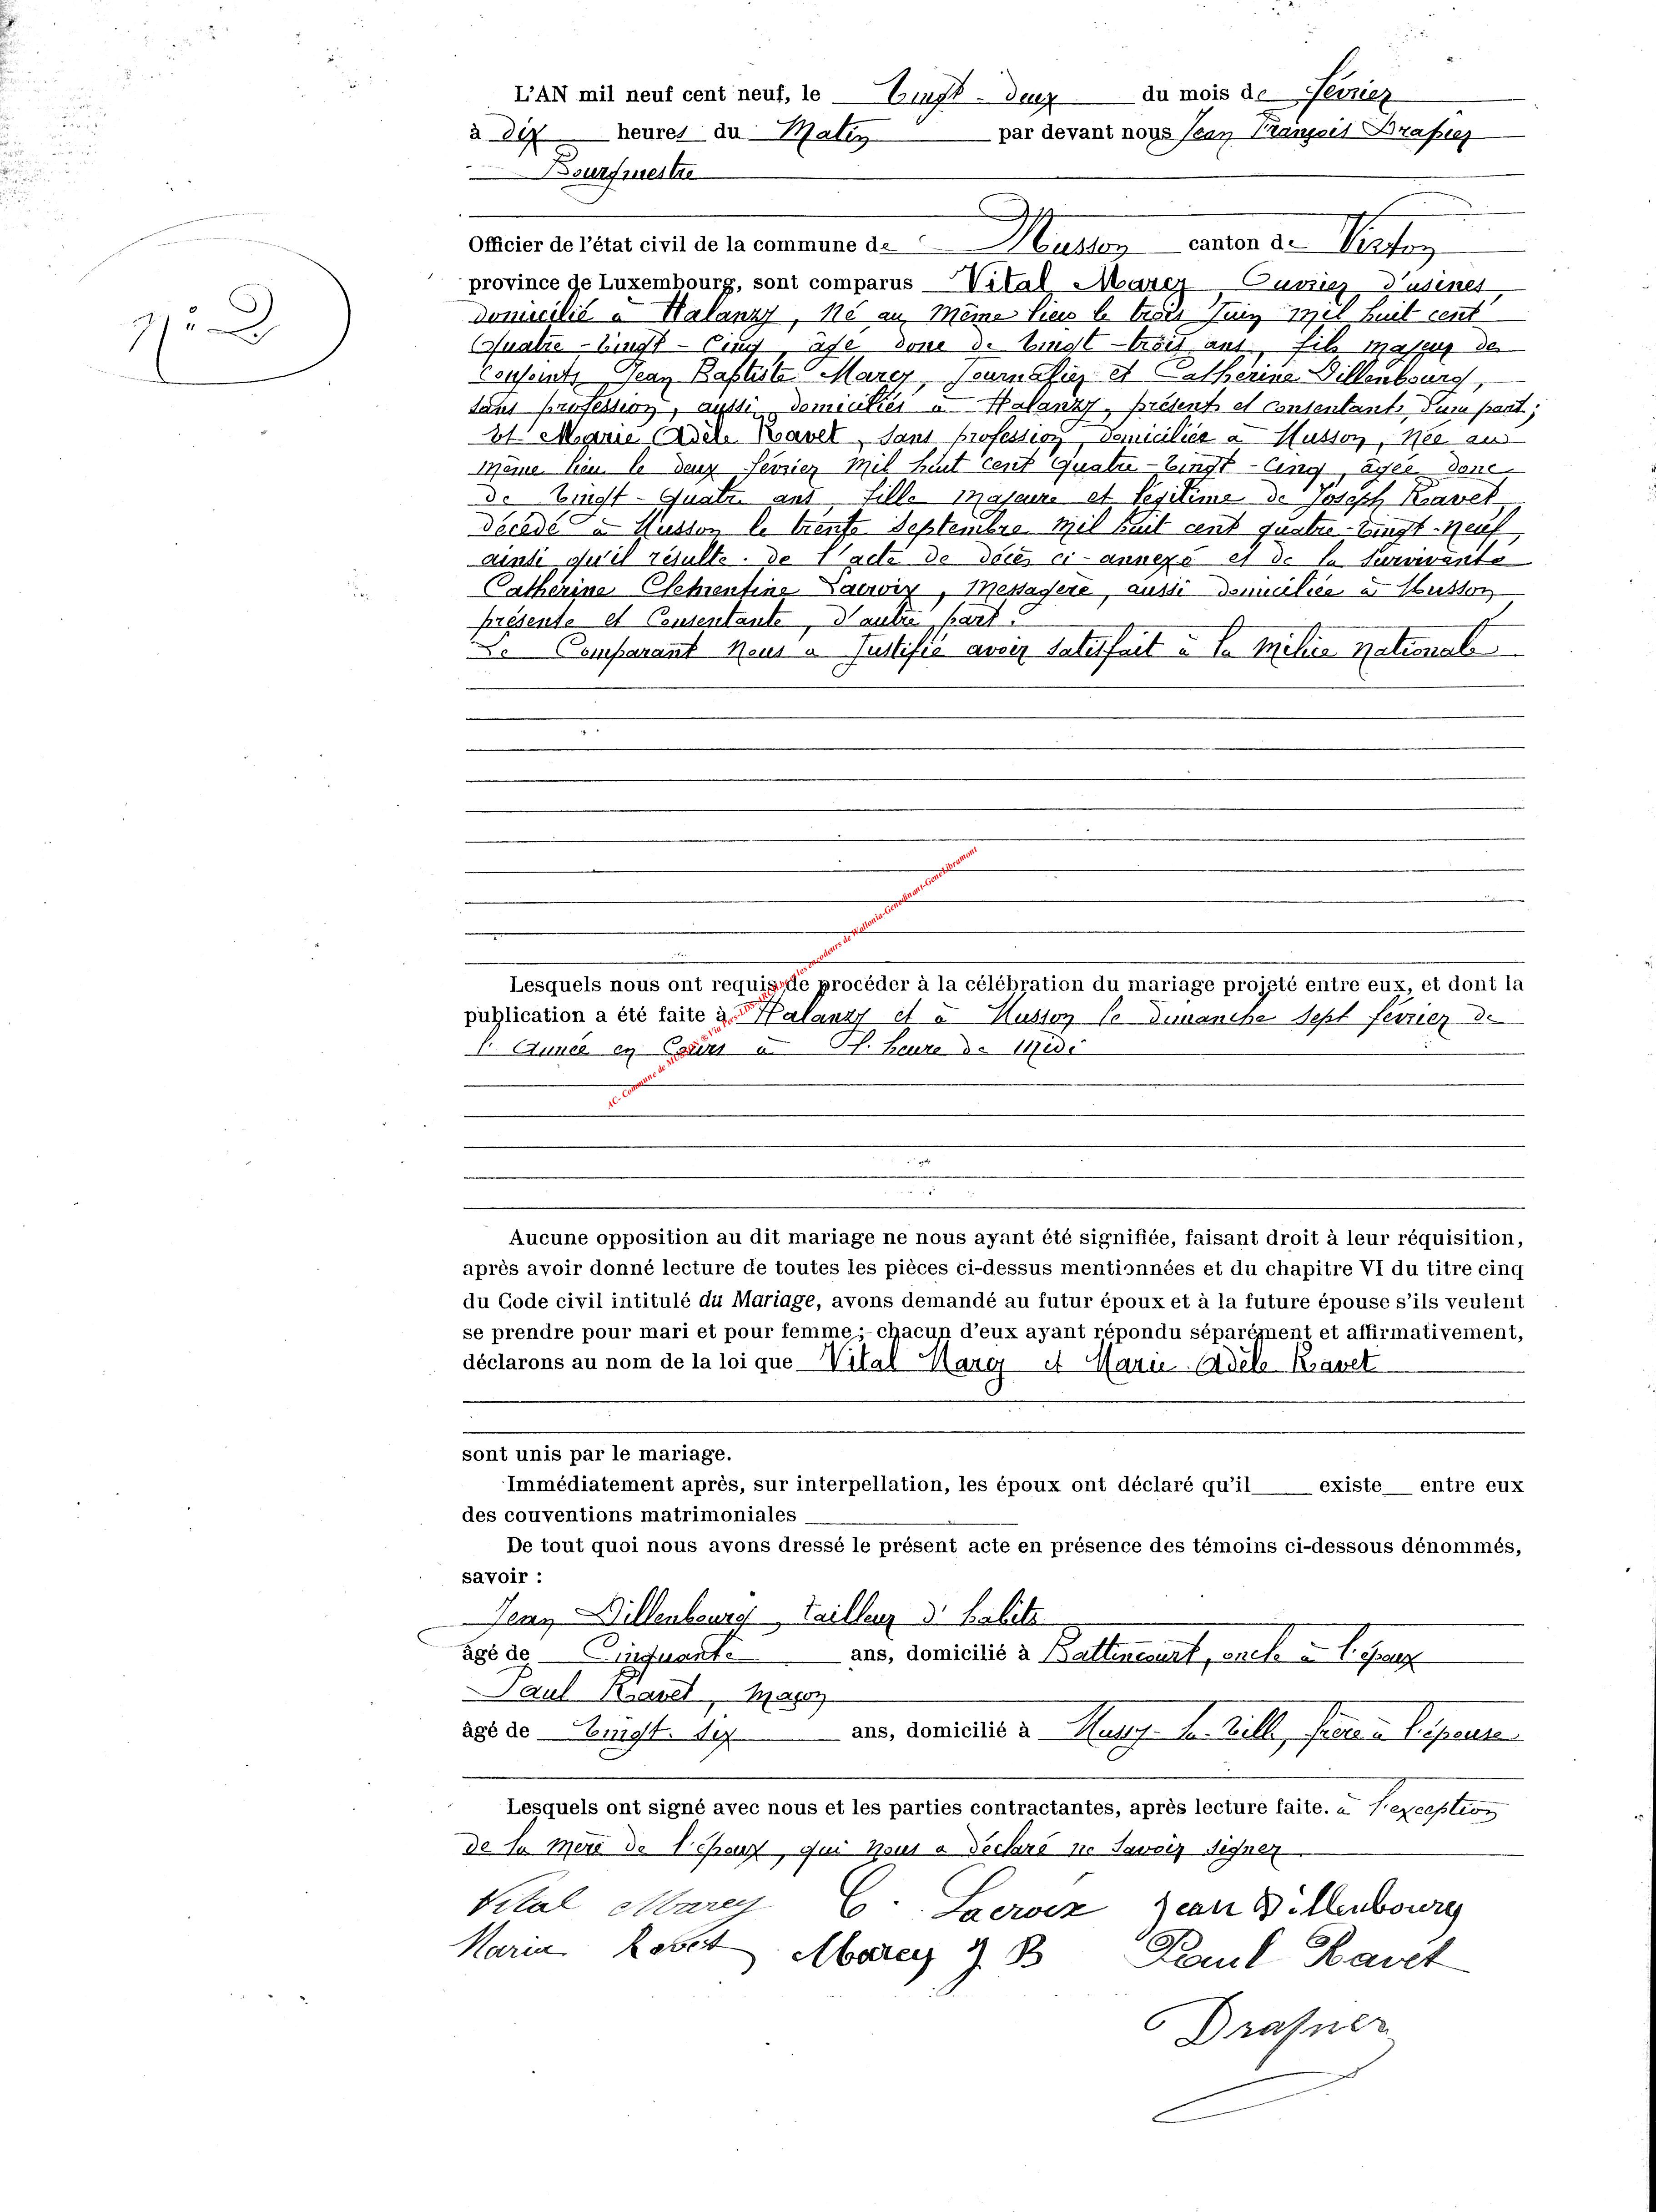 L'AN mil neuf cent neuf, le Vingt-deux du mois de Février
à dix heures du Matin par devant nous Jean François
Bourgmestre
Officier de l'état civil de la commune de Musson canton de Virton
province de Luxembourg, sont comparus Vital Marcy Ouvrier d'usines,
domicilié à Halanzy, Né au même lieu le trois Juin mil huit cent
Quatre-Vingt-Cinq, âgé donc de Vingt-trois ans, fils majeur des
Conjoints Jean Baptiste Marcy, Journalier et Catherine Dillenbourg,
sans profession, aussi domiciliés à Halanzy, présents et consentants, d'une part;
Et Marie Adèle Ravet, sans profession, domiciliée à Musson, Née au
même lieu le deux février Mil huit cent quatre-Vingt-Cinq, âgée donc
de Vingt-Quatre ans, fille majeure et légitime de Joseph Ravet
décédé à Musson le trente Septembre mil huit cent quatre-Vingt-Neuf,
ainsi qu'il résulte de l'acte de décès ci-annexé et de la survivante
Catherine Clémentine Lacroix, Messagère, aussi domiciliée à Musson
présente et Consentante, d'autre part.
Le Comparant Nous a Justifié avoir satisfait à la milice Nationale
N: 2
Lesquels nous ont requis de procéder à la célébration du mariage projeté entre eux, et dont la
publication a été faite à Halanzy et à Musson le dimanche sept février de
l'Année en Cours à l'heure de Midi
AC- Commune de MUSSON les encodeurs de Wallonia-Genedinant-GeneLibramont
Aucune opposition au dit mariage ne nous ayant été signifiée, faisant droit à leur réquisition,
après avoir donné lecture de toutes les pièces ci-dessus mentionnées et du chapitre VI du titre cinq
du Code civil intitulé du Mariage, avons demandé au futur époux et à la future épouse s'ils veulent
se prendre pour mari et pour femme; chacun d'eux ayant répondu séparément et affirmativement,
déclarons au nom de la loi que Vital Marcy et Marie-Adèle Ravet
sont unis par le mariage.
Immédiatement après, sur interpellation, les époux ont déclaré qu'il existe entre eux
des couventions matrimoniales
De tout quoi nous avons dressé le présent acte en présence des témoins ci-dessous dénommés,
savoir :
Jean Dillenbourg, tailleur d'habits
âgé de Cinquante ans, domicilié à Battincourt, oncle à l'époux
Paul Ravet, maçon
âgé de Vingt-six ans, domicilié à Mussy-la-Ville, frère à l'épouse
Lesquels ont signé avec nous et les parties contractantes, après lecture faite. à l'exception
de la mère de l'époux, qui Nous a déclaré ne savoir signer
Vital Marcy C. Lacroix Jean Dillenbourg
Marie Ravet Marcy J B Paul Ravet